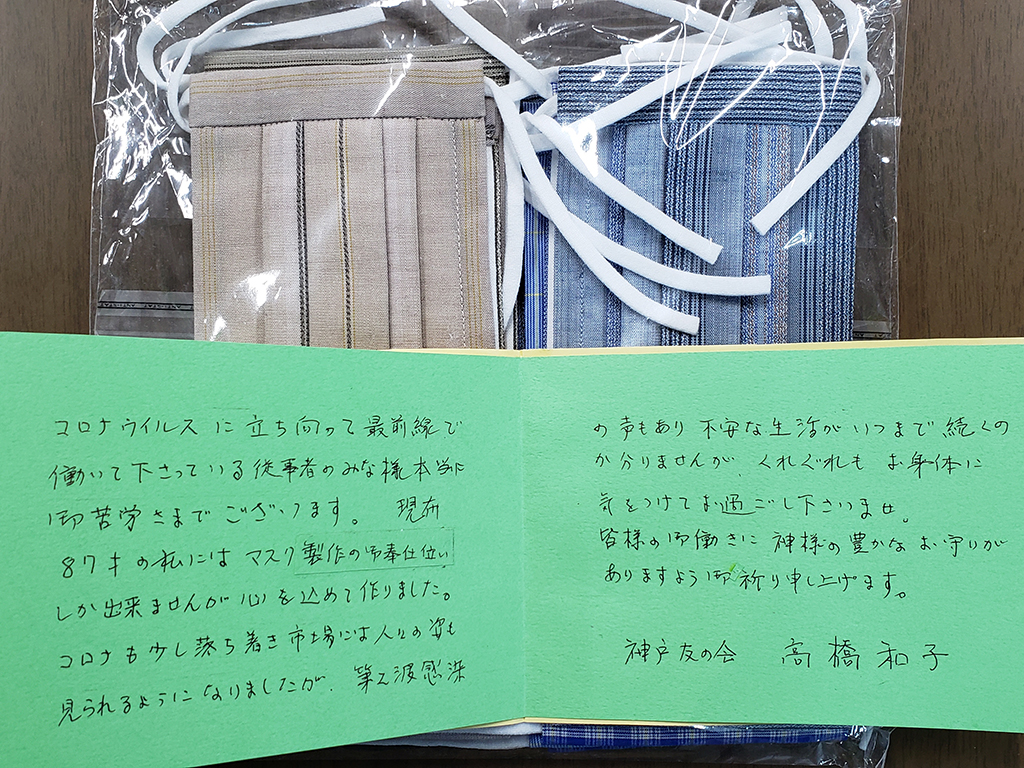 コロナウイルスに立ち向って最前線で
働いて下さっている従事者のみな様本当に
御苦労さまでございます。 現在
87才の私にはマスク製作の御奉仕位い
しか出来ませんが心を込めて作りました。
コロナも少し落ち着き市場には人々の姿も
見られるようになりましたが、第2波感染
の声もあり不安な生活がいつまで続くの
か分りませんが、くれぐれもお身体に
気をつけてお過ごし下さいませ。
皆様の御働きに神様の豊かなお守りが
ありますよう御祈り申し上げます。
神戸友の会 高橋和子